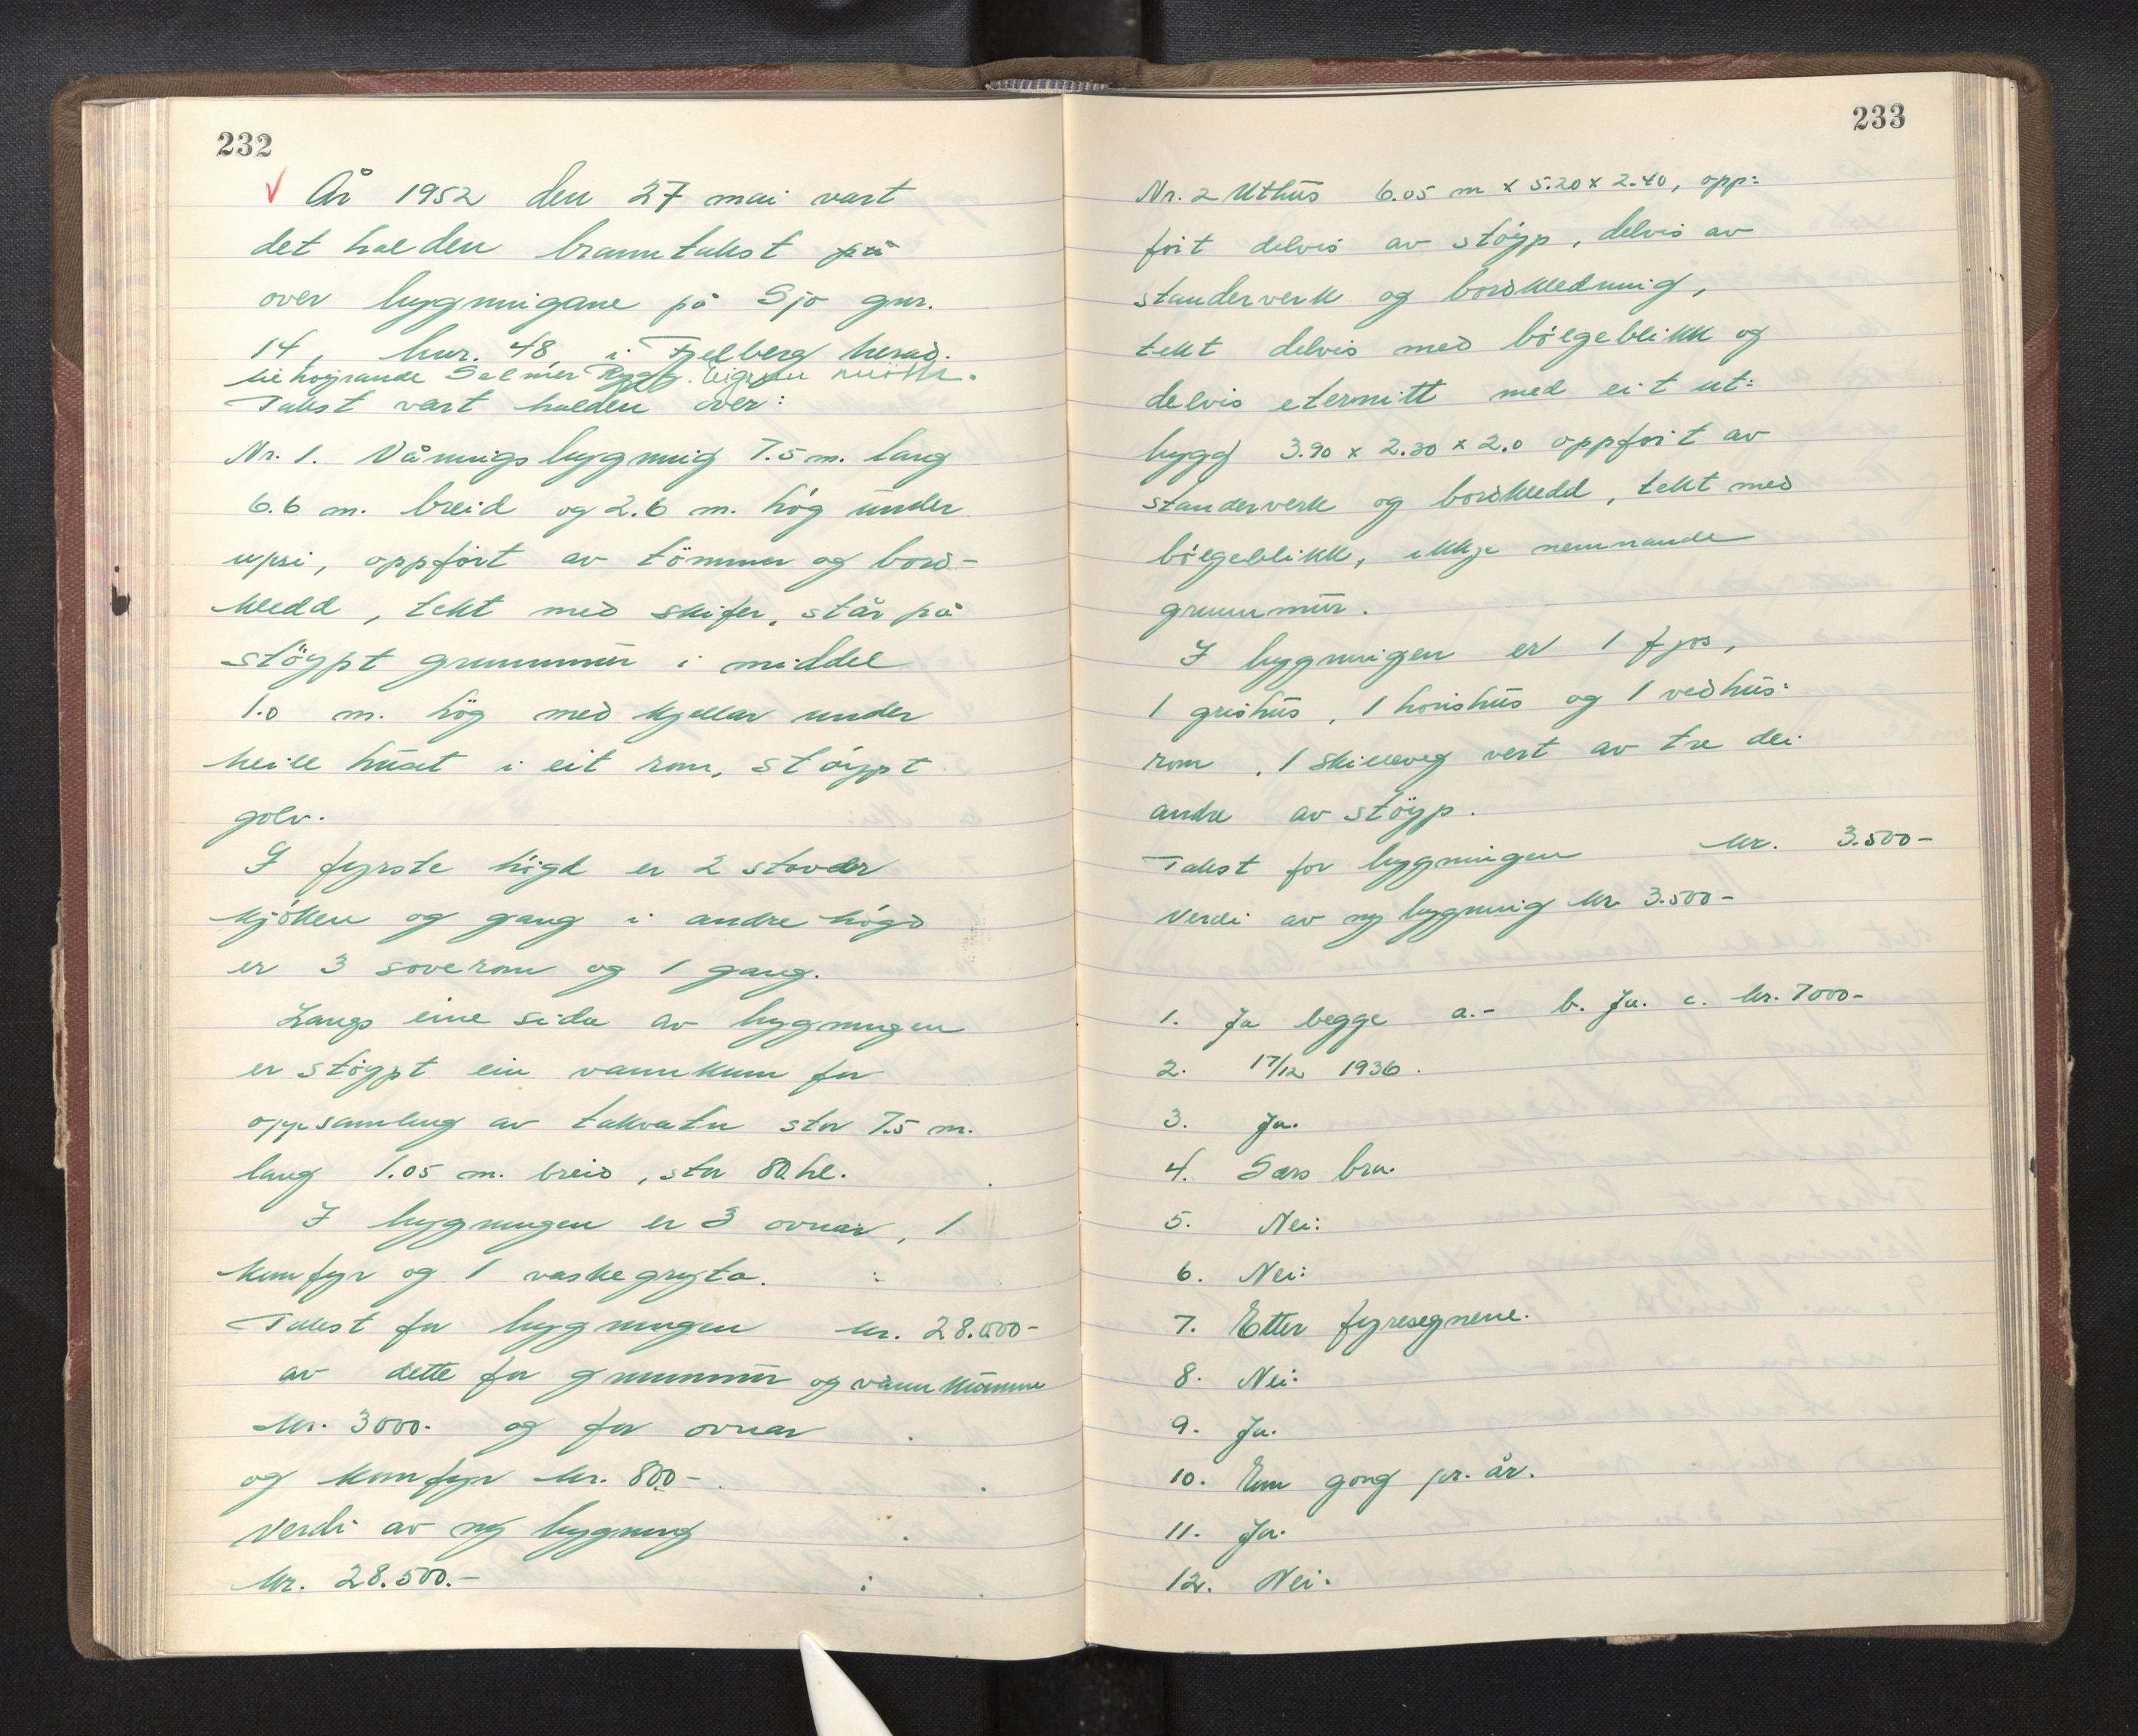 232
År 1952 den 27 mai vart
det halden branntakst på
over bygningane på Sjo gnr.
14, bnr. 48, i Fjelberg herad.
tilhøyrande Selmer Eigaren møtte.
Takst vart halden over:
Nr. 1. Våningsbygning 7.5 m. lang
6.6 m. breid og 2.6 m. høg under
upsi, oppført av tømmer og bord-
kledd, tekt med skifer, står på
støypt grunnmur i middel
1.0 m. høg med kjellar under
heile huset i eit rom, støypt
golv.
I fyrste høgd er 2 stover
kjøken og gang i andre høgd
er 3 soverom og 1 gang.
Langs eine sida av bygningen
er støypt ein vannkum for
oppsamling av takvatn stor 7.5 m.
lang 1.05 m. breid, stor 80 hl.
I bygningen er 3 ovnar, 1
komfyr og 1 vaskegryta.
Takst for bygningen kr. 28.000-
av dette for grunnmur og vannkumme
kr. 3000.- og for ovnar
og komfyr kr. 800-
Verdi av ny bygning
kr. 28.500.-
233
Nr. 2 Uthus 6.05 m x 5.20 x 2.40, opp:
ført delvis av støyp, delvis av
standerverk og bordkledning,
tekt delvis med bølgeblikk og
delvis eternitt med eit ut:
bygg 3.90 x 2.30 x 2.0 oppført av
standerverk og bordkledd, tekt med
bølgeblikk, ikkje nemnande
grunnmur.
I bygningen er 1 fjos,
1 grishus, 1 hønshus og 1 vedhus:
rom, 1 skilleveg vert av tre dei
andre av støyp.
Takst for bygningen kr. 3.500-
Verdi av ny bygning kr. 3.500-
1. Ja begge a.- b. Ja. c. kr. 7000-
2. 17/12 1936.
3. Ja.
4. Sers bra.
5. Nei:
6. Nei:
7. Etter fyresegnene.
8. Nei:
9. Ja.
10. Ein gong pr. år.
11. Ja.
12. Nei.